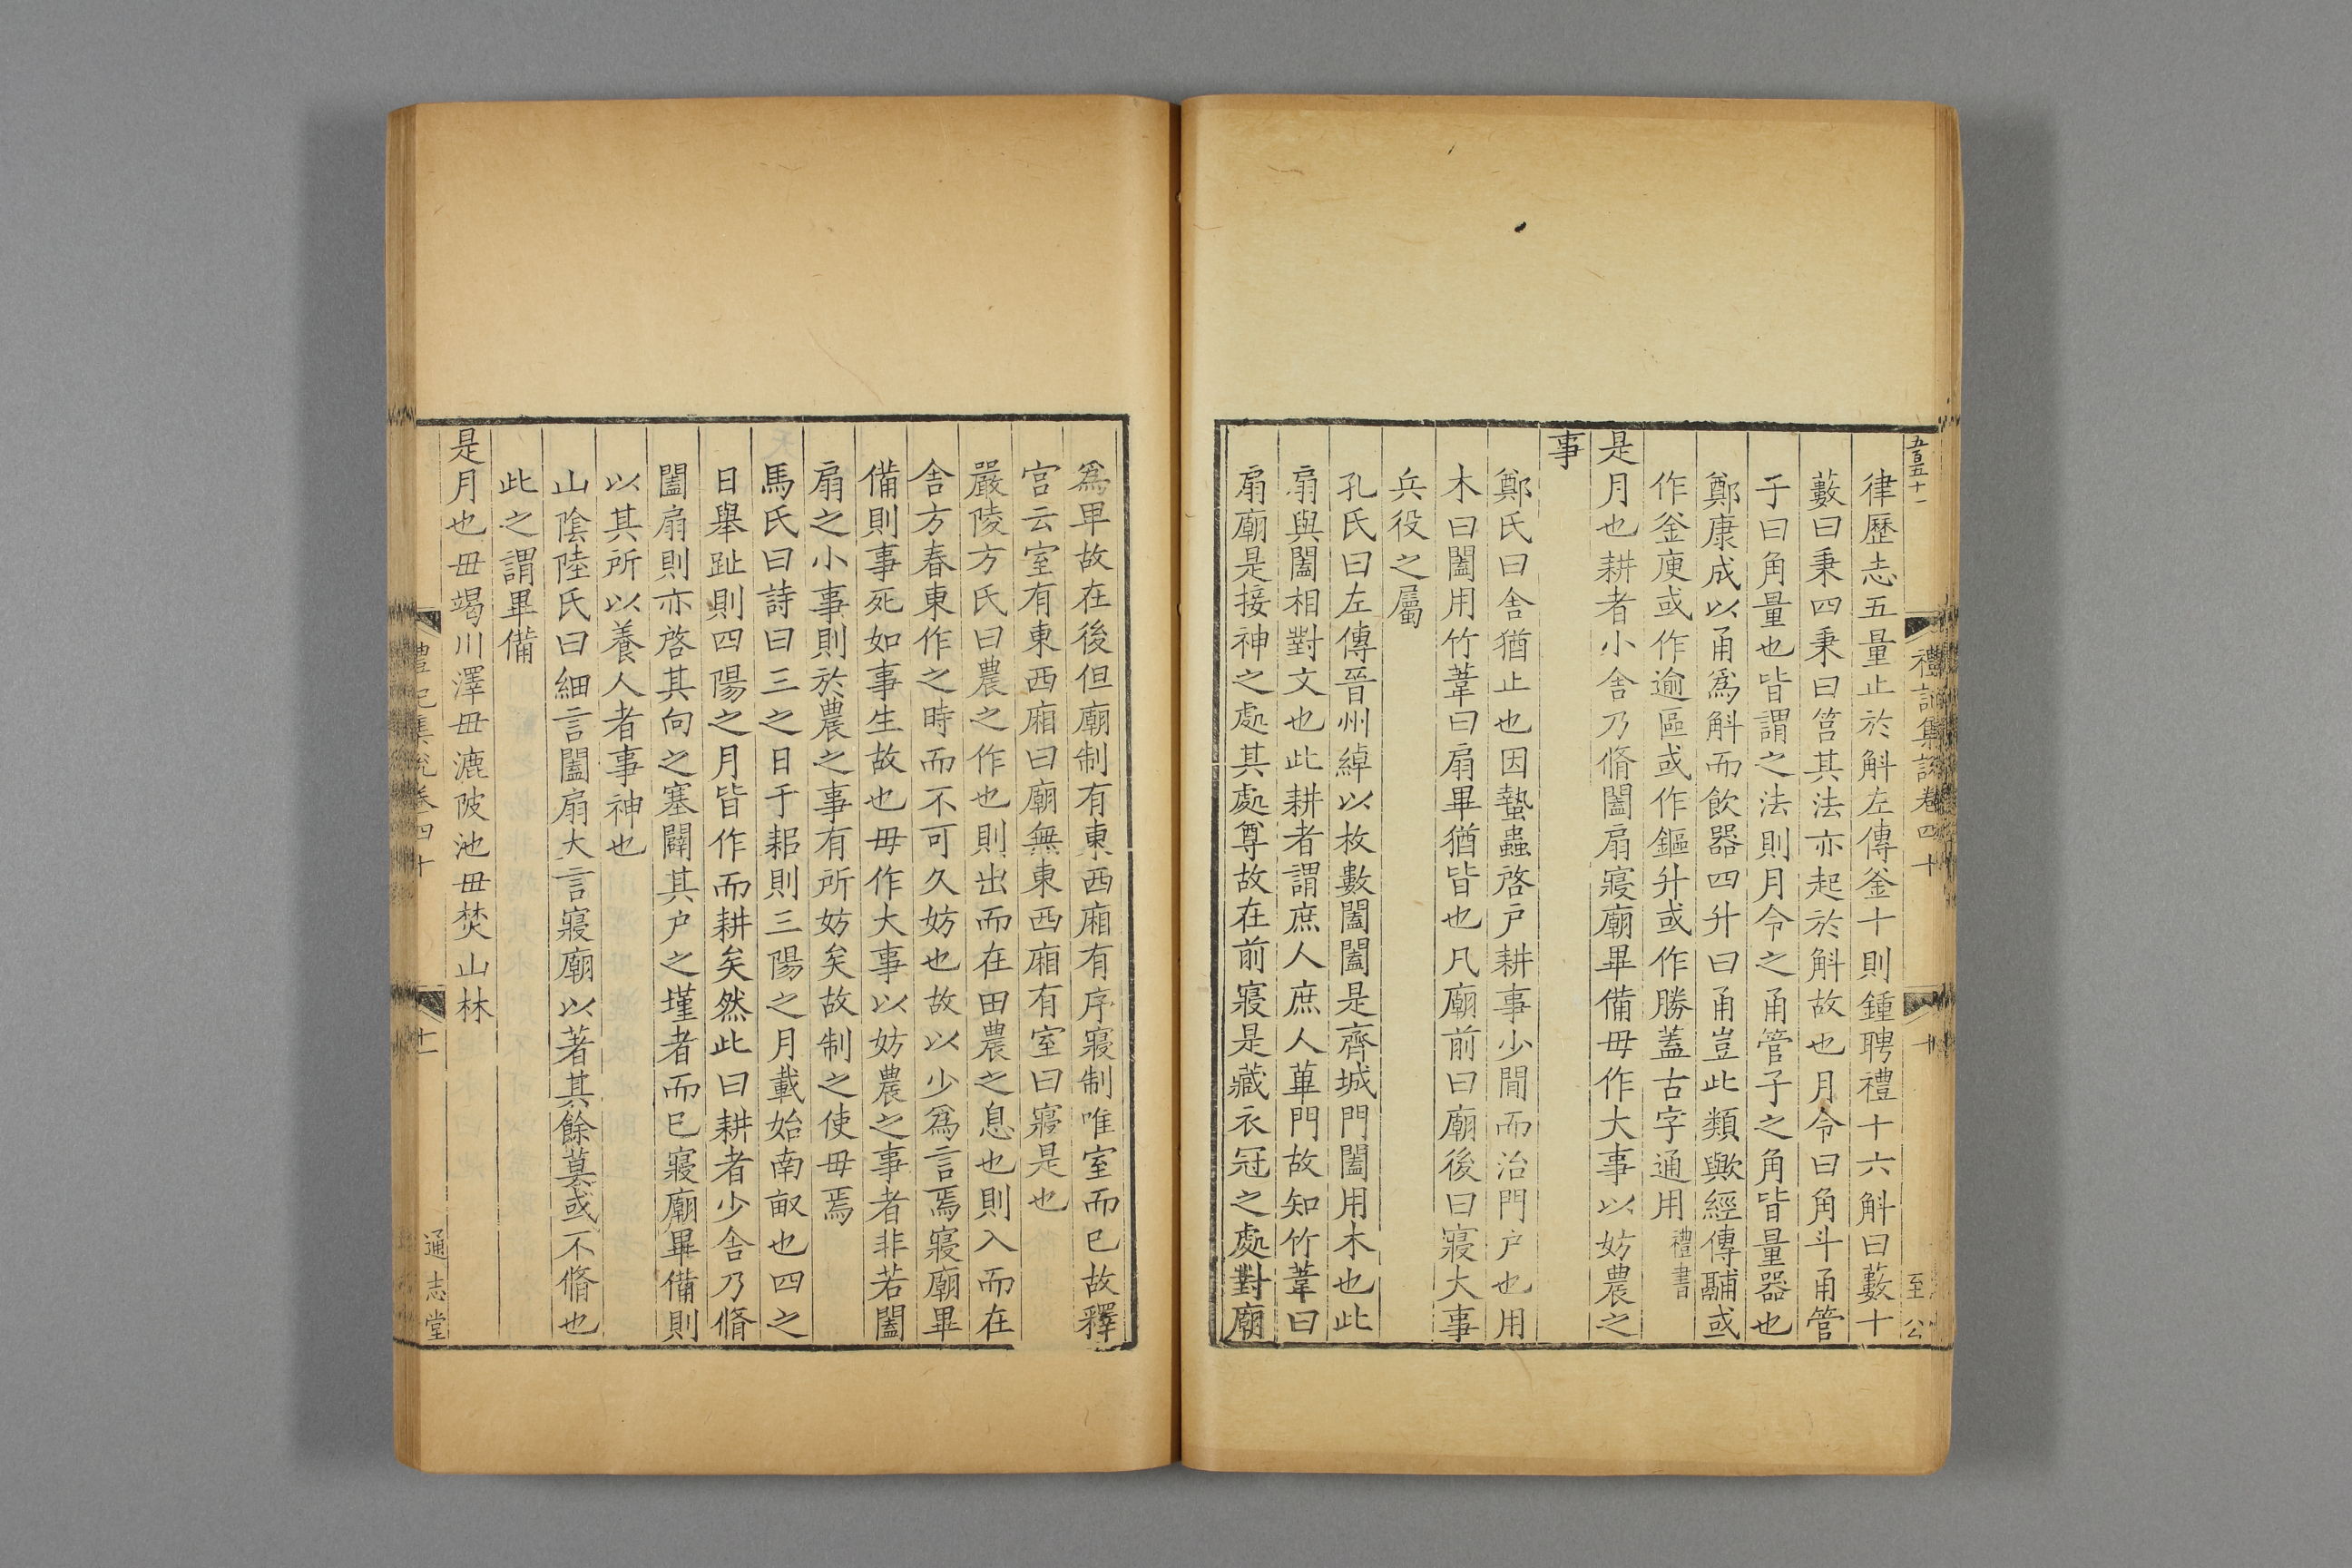 禮記集說卷四十
十
至
公
律歷志五量止於斛左傳釜十則鍾聘禮十六斛曰藪十
藪曰秉四秉曰筥其法亦起於斛故也月令曰角斗甬管
子曰角量也皆謂之法則月令之甬管子之角皆量器也
鄭康成以甬爲斛而飲器四升曰甬豈此類歟經傳鬴或
作釜庾或作逾區或作鏂升或作勝蓋古字通用禮書
是月也耕者少舍乃脩闔扇寢廟畢備毋作大事以妨農之
事
鄭氏曰舍猶止也因蟄蟲啓戶耕事少閒而治門户也用
木曰闔用竹葦曰扇畢猶皆也凡廟前曰廟後曰寢大事
兵役之屬
孔氏曰左傳晉州綽以枚數闔闔是齊城門闔用木也此
扇與闔相對文也此耕者謂庶人庶人蓽門故知竹葦曰
扇廟是接神之處其處尊故在前寢是藏衣冠之處對廟
爲卑故在後但廟制有東西廂有序寢制唯室而已故釋
宮云室有東西廂曰廟無東西廂有室曰寢是也
嚴陵方氏曰農之作也則出而在田農之息也則入而在
舍方春東作之時而不可久妨也故以少爲言焉寢廟畢
備則事死如事生故也毋作大事以妨農之事者非若闔
扇之小事則於農之事有所妨矣故制之使毋焉
馬氏曰詩曰三之日于耜則三陽之月載始南畝也四之
日舉趾則四陽之月皆作而耕矣然此曰耕者少舍乃脩
闔扇則亦啓其向之塞闢其户之墐者而已寢廟畢備則
以其所以養人者事神也
山陰陸氏曰細言闔扇大言寢廟以著其餘莫或不脩也
此之謂畢備
是月也毋竭川澤毋漉陂池毋焚山林
禮記集說卷四十
十一
通志堂